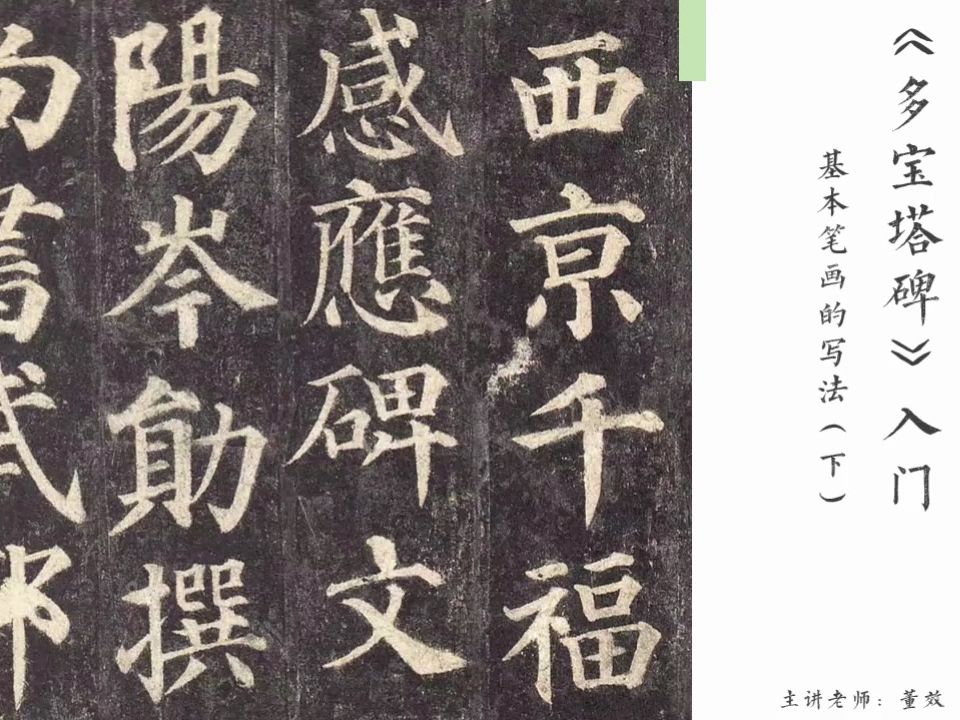 《多宝塔碑》入门
基本笔画的写法（下）
西亰千福
感應碑文
陽岑勛撰
主讲老师：董效